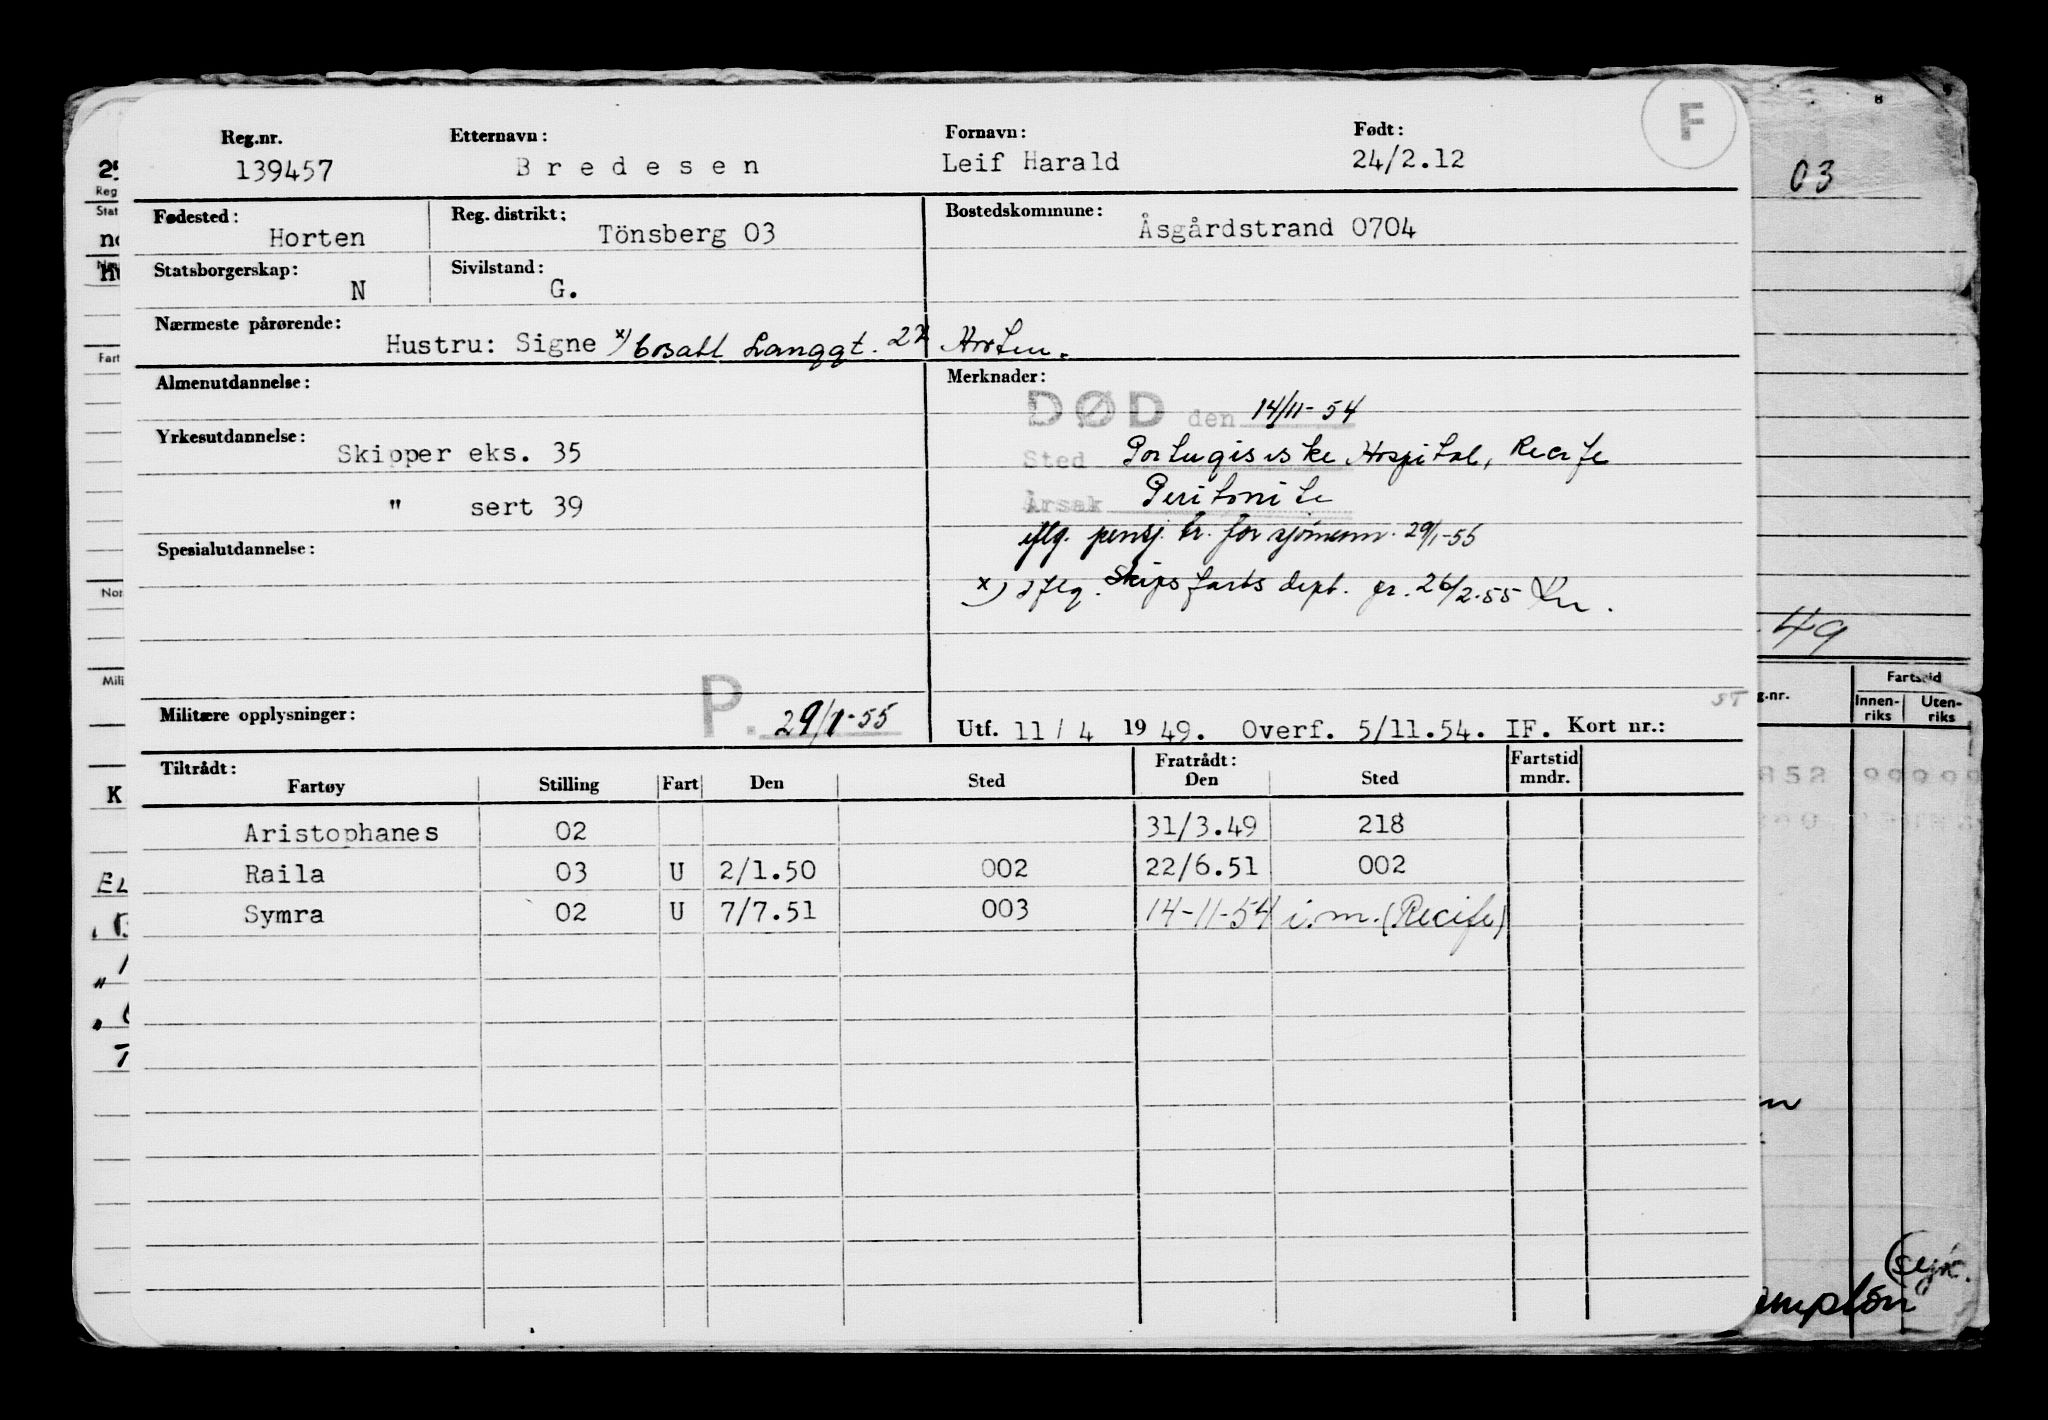 F
Reg.nr. Etternavn: Fornavn: Født:
139457 Bredesen Leif Harald 24/2.12
03
Fødested: Reg. distrikt: Bostedskommune:
Horten Tönsberg 03 Åsgårdstrand 0704
Statsborgerskap: Sivilstand:
N G.
Nærmeste pårørende:
Hustru: Signe x) bosatt Langgt. 22 Horten.
Almenutdannelse: Merknader:
DØD den 14/11-54
Yrkesutdannelse:
Skipper eks. 35
Sted Portugisiske Hospital, Recife
" sert 39
Årsak Peritonite
iflg. pensj. tr. for sjömenn. 29/1-55
Spesialutdannelse:
x) iflg. Skipsfarts dept. br. 26/2-55
49
Militære opplysninger: P. 29/1-55
Utf. 11/4 1949. Overf. 5/11.54. IF. Kort nr.:
Tiltrådt: Fratrådt: Fartstid mndr.
Fartøy Stilling Fart Den Sted Den Sted
Aristophanes 02 31/3.49 218
Raila 03 U 2/1.50 002 22/6.51 002
Symra 02 U 7/7.51 003 14-11-54 i.m. (Recife)
Fartstid
Innenriks Utenriks